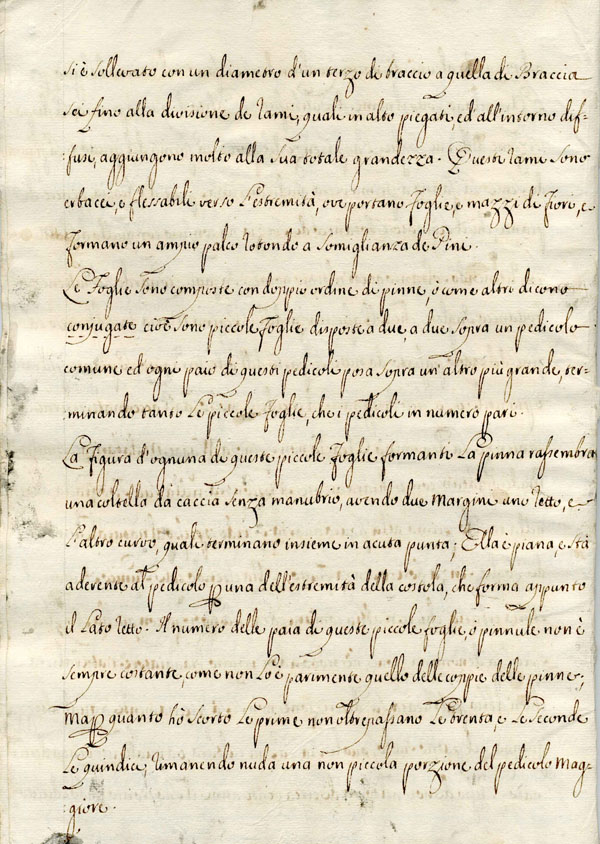 si è sollevato con un diametro d'un terzo de braccio a quella di Braccia
sei fino alla divisione de rami, quali in alto piegati, ed all'intorno dif-
fusi, aggiungono molto alla sua totale grandezza. Questi rami sono
erbacei, e flessabili verso l'estremità, ove portano foglie, e mazzi di fiori, e
formano un ampio palco rotondo a somiglianza de Pine.
Le foglie sono composte con doppio ordine di pinne, ò come altri dicono
conjugate cioè sono piccole foglie disposte a due, a due sopra un pedicolo
comune ed ogni paio di questi pedicoli posa sopra un'altro più grande, ter-
minando tanto le piccole foglie, che i pedicoli in numero pari.
La figura d'ognuna de queste piccole foglie formanti la pinna rassembra
una coltella da caccia senza manubrio, avendo due margine uno retto, e
l'altro curvo, quali terminano insieme in acuta punta; Ella è piana, e stà
aderente al pedicolo p una dell'estremità della costola, che forma appunto
il lato retto. Il numero delle paia de queste piccole foglie, o pinnule non è
sempre costante, come non lo è parimente quello delle coppie delle pinne;
Ma p quanto hò scorto le prime non oltrepassano le trenta, e le seconde
le quindici, rimanendo nuda una non piccola porzione del pedicolo mag-
giore.